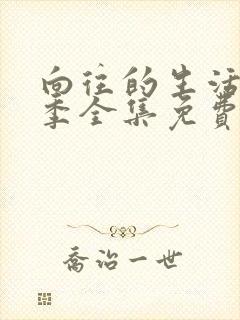 向往的生活
季全集免费
乔治一世